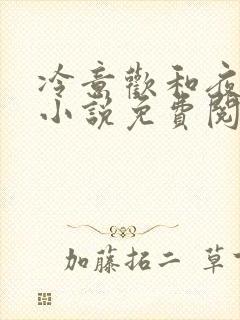 冷意歡和夜
小說免費閱
加藤拓二 草